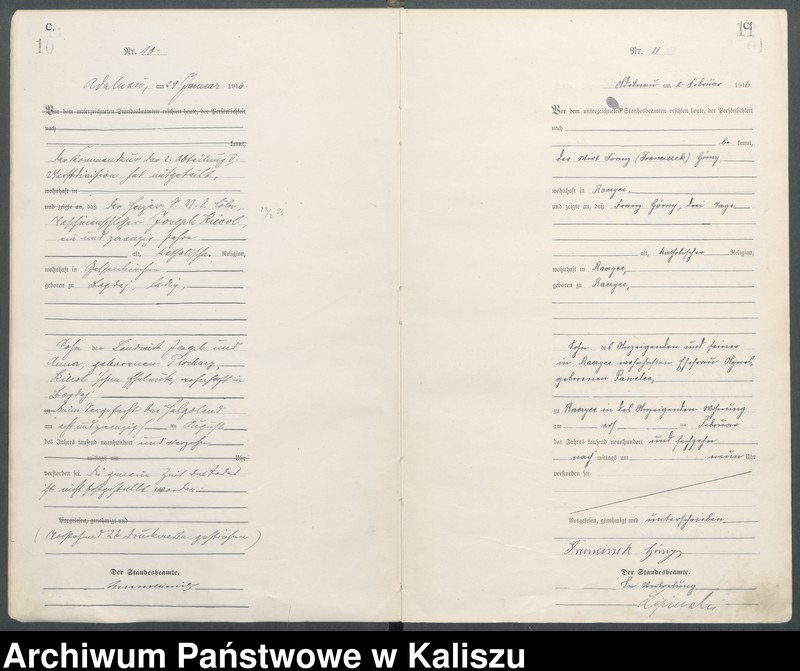 C.
10
Nr. 10.
Adelnau, am 21 Januar 1916.
Vor dem unterzeichneten Standesbeamten erschien heute, der Persönlichkeit
nach
kannt,
der Kommandeur der 2. Abteilung II.
Werftdivision hat mitgeteilt,
wohnhaft in
und zeigte an, daß der Heizer
Maschinenschlosser Joseph Kiecol,
ein und zwanzig Jahre
alt, katholischer Religion,
wohnhaft in Gelsenkirchen
geboren zu Bogdaj, ledig,
Sohn der Landwirt und
Anna, geborenen
Kiecol'schen Eheleute, wohnhaft in
Bogdaj
beim Seegefecht bei Helgoland
am acht und zwanzigsten August
des Jahres tausend neunhundert und vierzehn
mittags um Uhr
verstorben sei. Die genaue Zeit des Todes
ist nicht festgestellt worden.
Vorgelesen, genehmigt und
(Vorstehend 22 Druckworte gestrichen)
Der Standesbeamte.
11
Nr. 11
Adelnau am 2. Februar 1916
Vor dem unterzeichneten Standesbeamten erschien heute, der Persönlichkeit
nach
be kannt,
der Wirt Franz (Franciszek) Górny
wohnhaft in
und zeigte an, daß Franz Górny, drei Tage
alt, katholischer Religion,
wohnhaft in
geboren zu
Sohn des Anzeigenden und seiner
in wohnhaften Ehefrau Agnes,
geborenen Pawelec,
zu in des Anzeigenden Wohnung
am Februar
des Jahres tausend neunhundert und sechzehn
nach mittags um neun Uhr
verstorben sei.
Vorgelesen, genehmigt und unterschrieben
Franciszek Górny
Der Standesbeamte.
In Vertretung
Lipinski
Archiwum Państwowe w Kaliszu